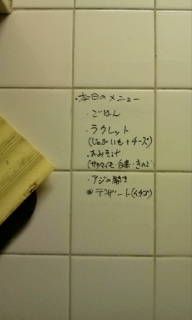 ・本日のメニュー
・ごはん
・ラクレット
(じゃがいも+チーズ)
・おみそ汁
(サツマイモ・白菜・きのこ)
・アジの開き
・デザート(イチゴ)